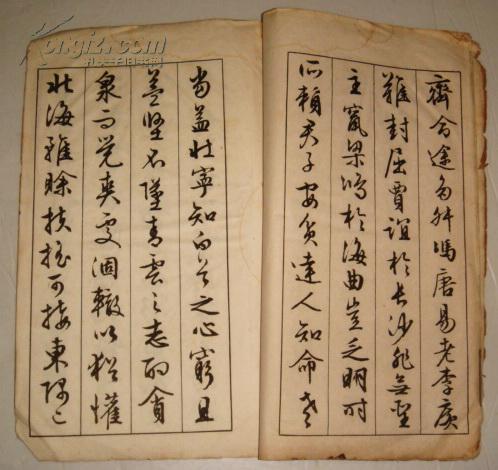 齊命途多舛馮唐易老李廣
難封屈賈誼於長沙非無聖
主竄梁鴻於海曲豈乏明時
所賴君子安貧達人知命老
當益壯寧知白首之心窮且
益堅不墜青雲之志酌貪
泉而覺爽處涸轍以猶懽
北海雖賒扶搖可接東隅已
kongfz.com
孔夫子旧书网